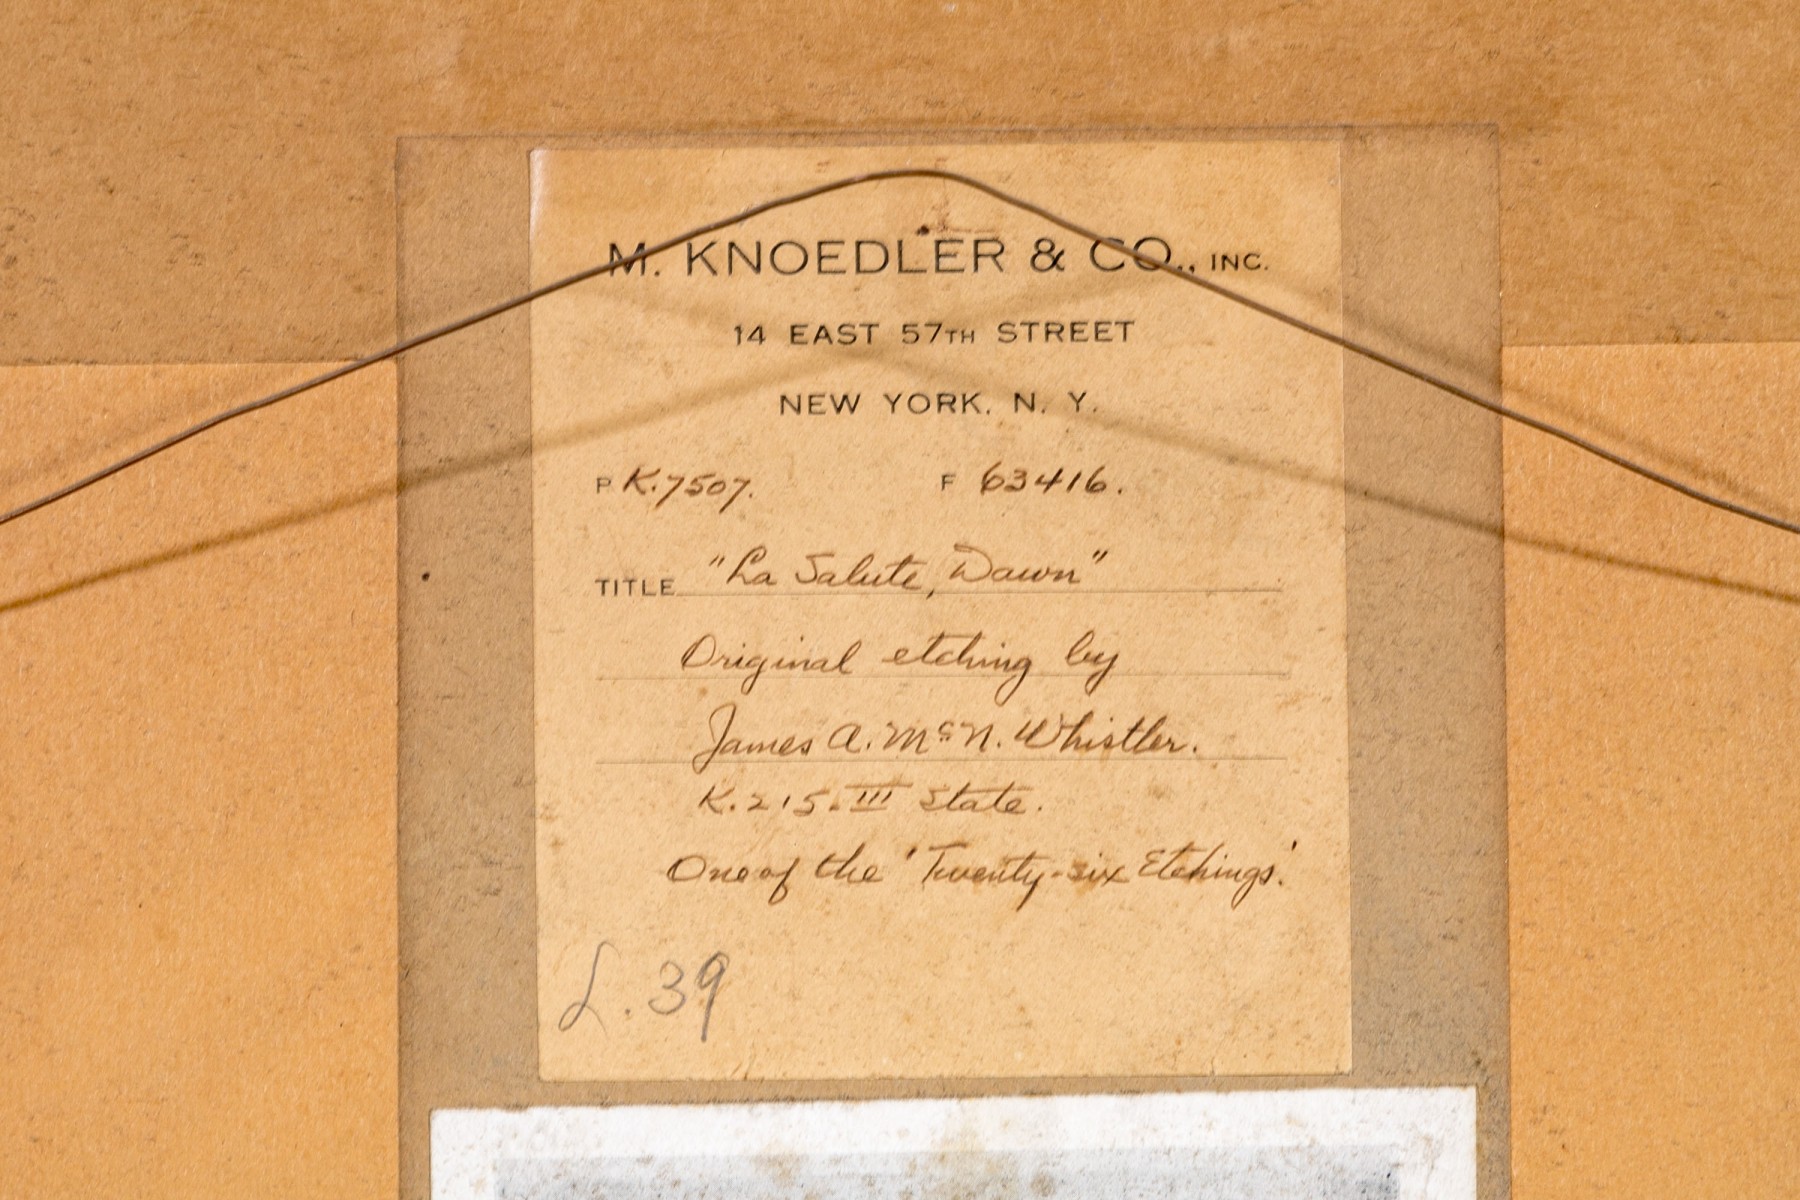 M. KNOEDLER & CO., INC.
14 EAST 57TH STREET
NEW YORK, N. Y.
P K.7507. F 63416.
TITLE "La Salute, Dawn"
Original etching by
James A. McN. Whistler.
K.215. III State.
One of the 'Twenty-six Etchings'.
L.39